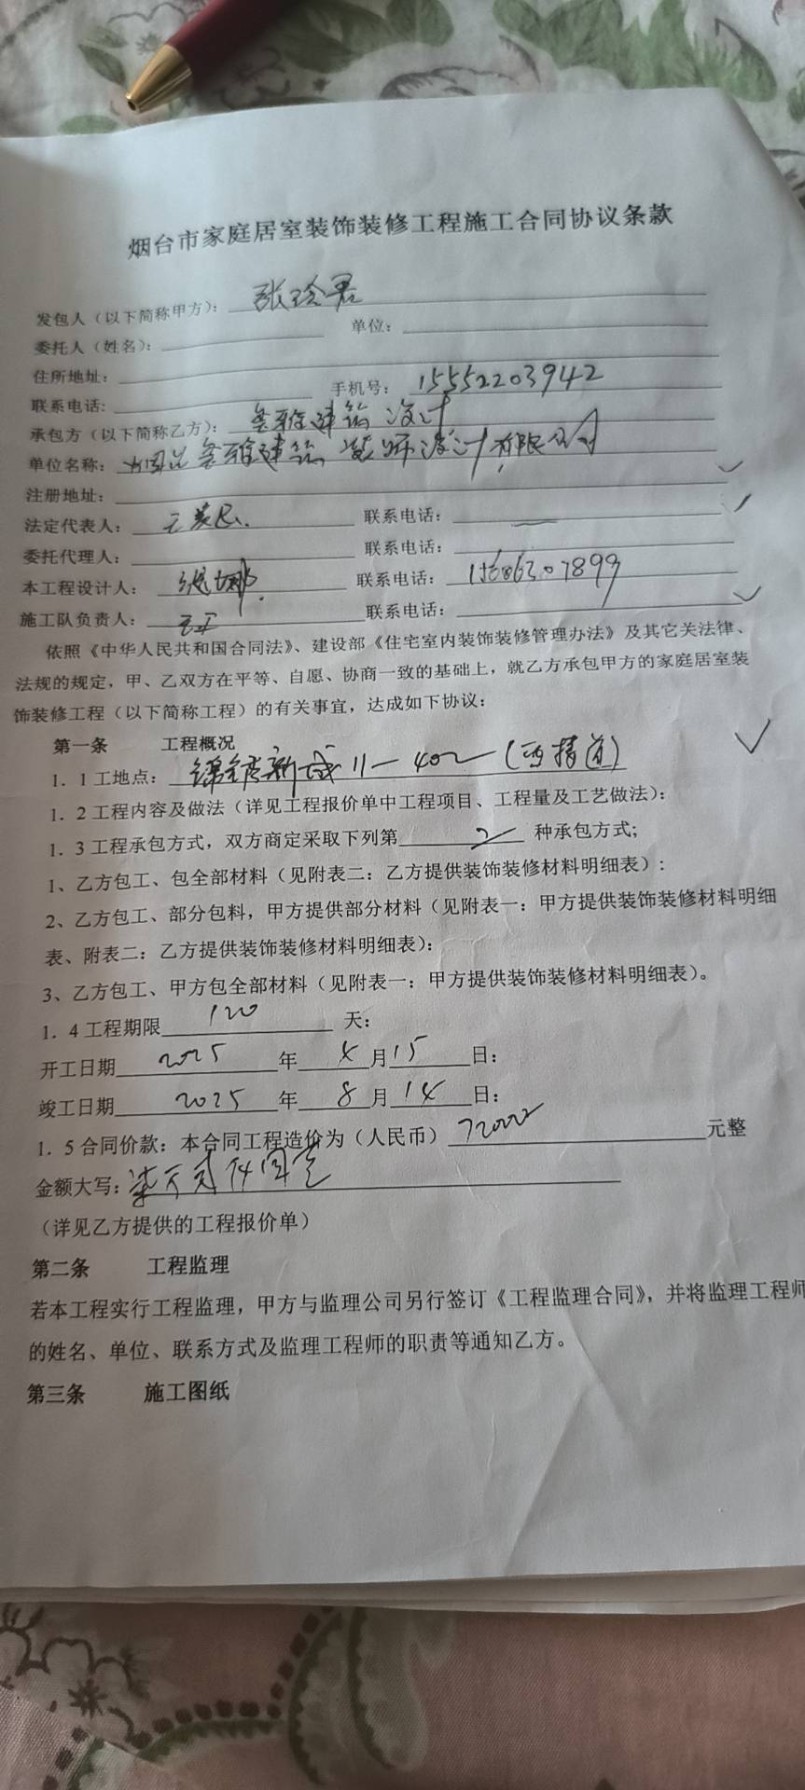 烟台市家庭居室装饰装修工程施工合同协议条款
发包人（以下简称甲方）：张玲君
委托人（姓名）： 单位：
住所地址：
联系电话： 手机号：15552203942
承包方（以下简称乙方）：雅建筑设计
单位名称：雅建筑装饰设计有限公司
注册地址：
法定代表人： 联系电话：
委托代理人： 联系电话：
本工程设计人：娜 联系电话：15686307899
施工队负责人：王工 联系电话：
依照《中华人民共和国合同法》、建设部《住宅室内装饰装修管理办法》及其它关法律、
法规的规定，甲、乙双方在平等、自愿、协商一致的基础上，就乙方承包甲方的家庭居室装
饰装修工程（以下简称工程）的有关事宜，达成如下协议：
第一条 工程概况
1．1工地点：新城11—402（西精道）
1．2工程内容及做法（详见工程报价单中工程项目、工程量及工艺做法）：
1．3工程承包方式，双方商定采取下列第 2 种承包方式；
1、乙方包工、包全部材料（见附表二：乙方提供装饰装修材料明细表）：
2、乙方包工、部分包料，甲方提供部分材料（见附表一：甲方提供装饰装修材料明细
表、附表二：乙方提供装饰装修材料明细表）：
3、乙方包工、甲方包全部材料（见附表一：甲方提供装饰装修材料明细表）。
1．4工程期限 120 天：
开工日期 2025 年 4 月 15 日：
竣工日期 2025 年 8 月 14 日：
1．5合同价款：本合同工程造价为（人民币） 72000 元整
金额大写：柒万贰仟圆整
（详见乙方提供的工程报价单）
第二条 工程监理
若本工程实行工程监理，甲方与监理公司另行签订《工程监理合同》，并将监理工程师
的姓名、单位、联系方式及监理工程师的职责等通知乙方。
第三条 施工图纸